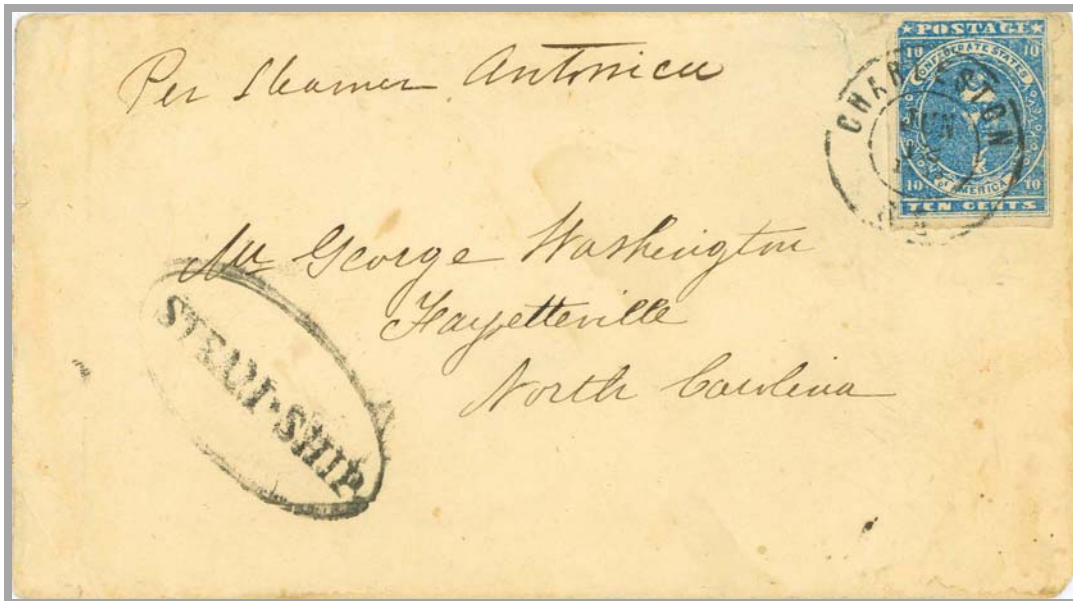 Per Steamer Antonica
★ POSTAGE ★
10 10
CONFEDERATE STATES
of AMERICA
10 10
TEN CENTS
CHARLESTON
JUN
Mr George Washington
Fayetteville
North Carolina
STEAM-SHIP